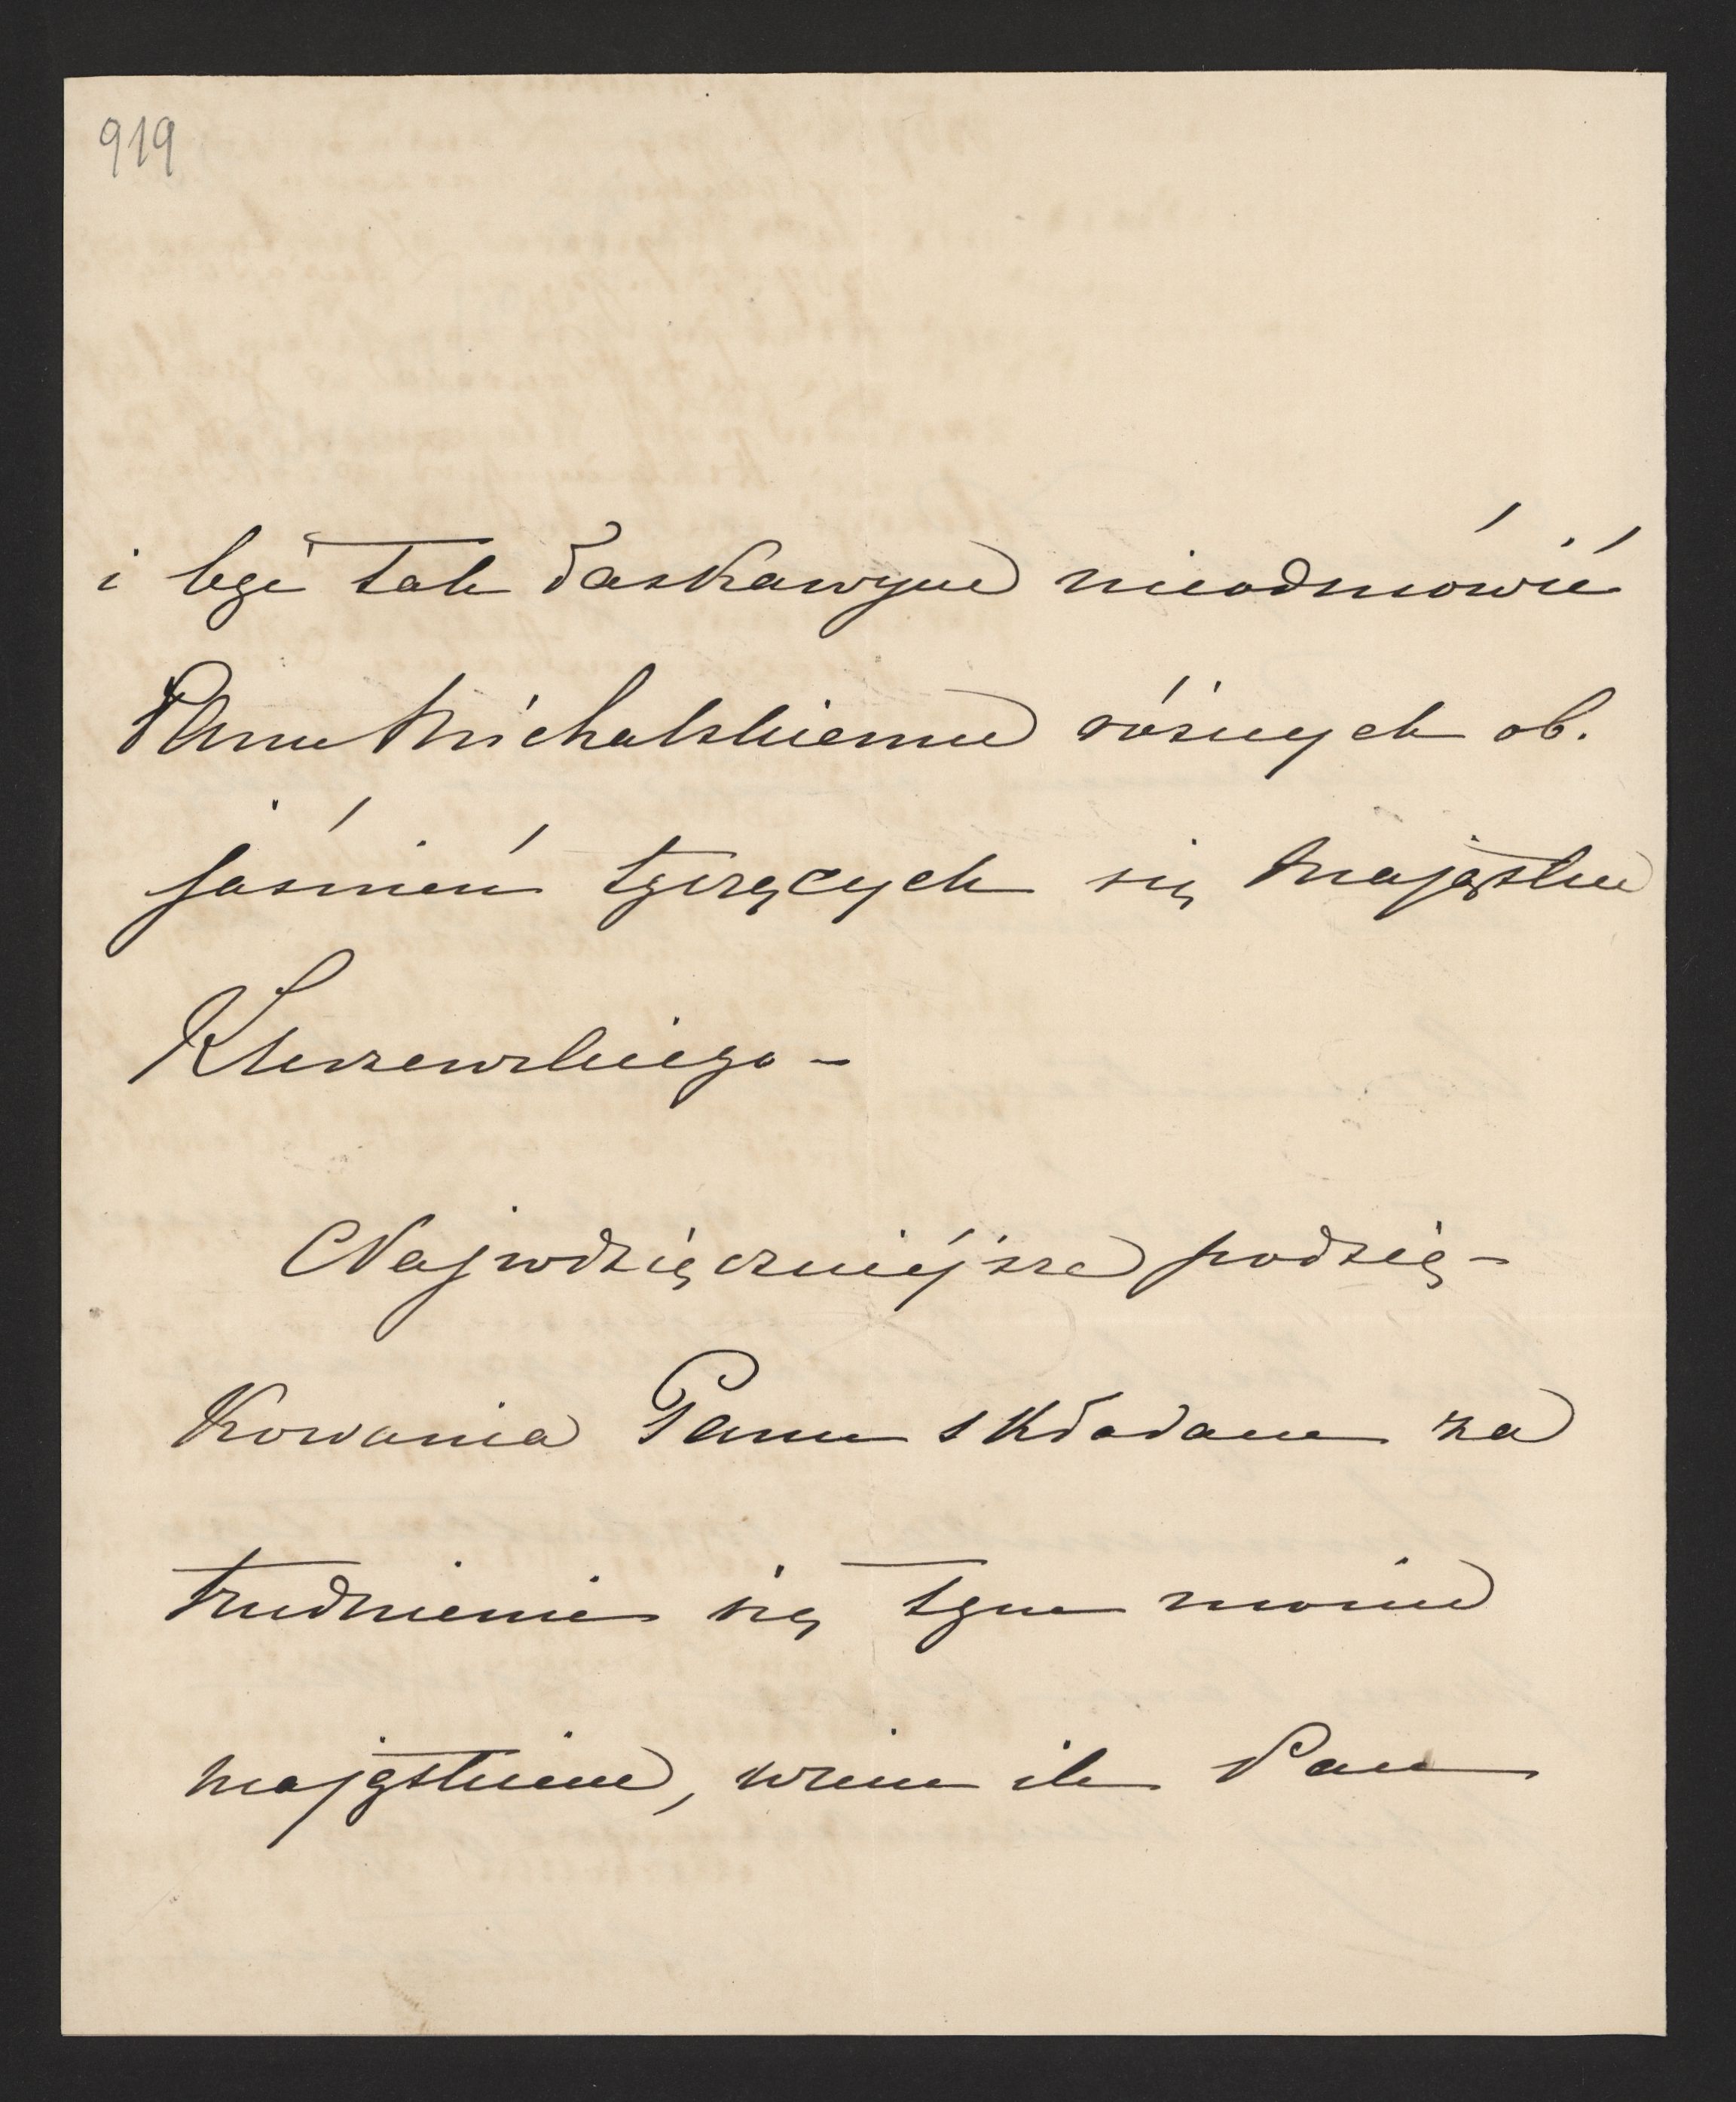 919
i być tak łaskawym nieodmówić
Panu Michalskiemu różnych ob.
jaśnień tyczących się majątku
Kluczewskiego –
Najwdzięczniejsze podzię-
kowania Panu składam za
trudnienie się tym moim
majątkiem, wiem ile Pan